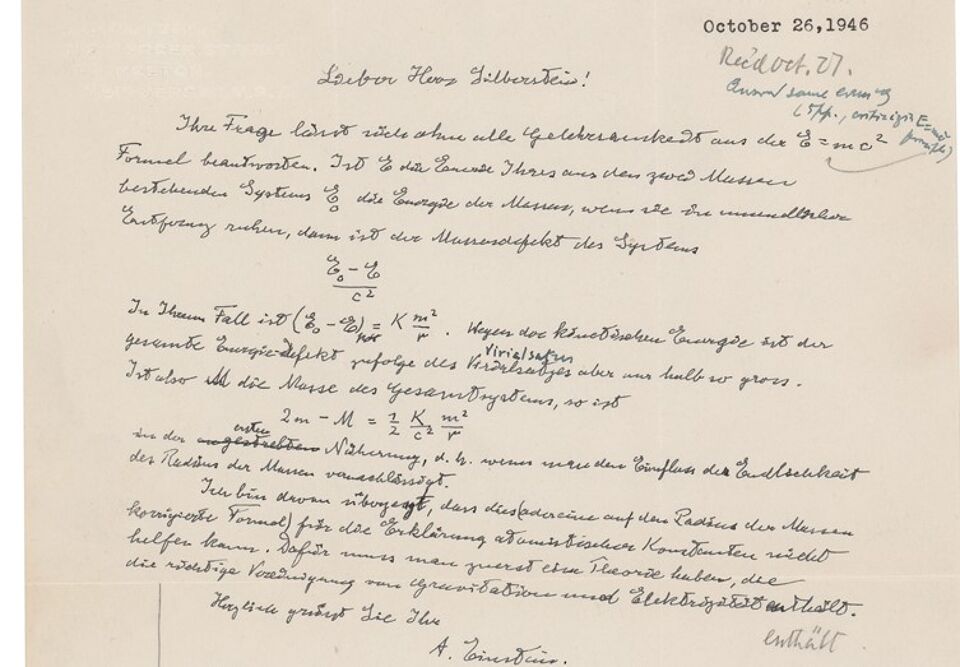 October 26, 1946
Rec'd Oct. 27.
Answ'd same
(5pp., E=mc²
Lieber Herr Silberstein!
Ihre Frage lässt sich ohne alle Gelehrsamkeit aus der E = mc²
Formel beantworten. Ist E die Energie Ihres aus den zwei Massen
bestehenden Systems E₀ die Energie der Massen, wenn sie in unendlicher
Entfernung ruhen, dann ist der Massendefekt des Systems
E₀ – E
c²
In Ihrem Fall ist (E₀ – E) = K m²/r. Wegen der kinetischen Energie ist der
Virialsatzes
gesamte Energie-Defekt zufolge des Virialsatzes aber nur halb so gross.
Ist also M die Masse des Gesamtsystems, so ist
2m – M = 1/2 K/c² m²/r
ersten
in der angestrebten Näherung, d. h. wenn man den Einfluss der Endlichkeit
des Radius der Massen vernachlässigt.
Ich bin davon überzeugt, dass dies (oder eine auf den Radius der Massen
korrigierte Formel) für die Erklärung atomistischer Konstanten nicht
helfen kann. Dafür muss man zuerst eine Theorie haben, die
die richtige Vereinigung von Gravitation und Elektrizität enthält.
enthält
Herzlich grüsst Sie Ihr
A. Einstein.